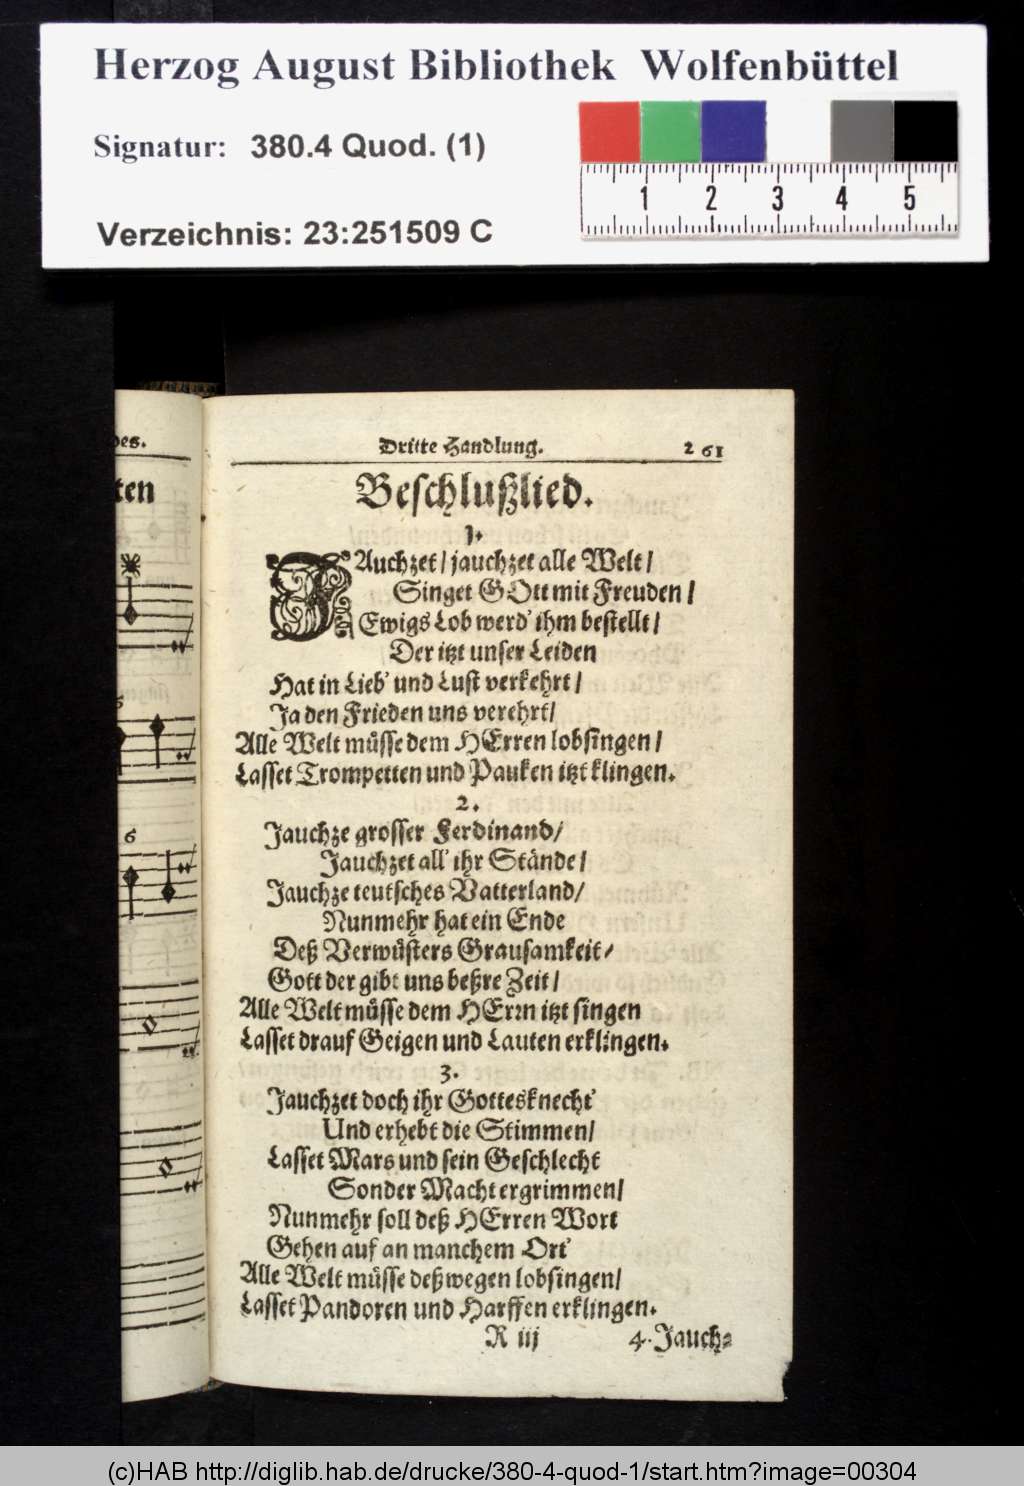 Herzog August Bibliothek Wolfenbüttel
Signatur: 380.4 Quod. (1)
Verzeichnis: 23:251509 C
1 2 3 4 5
des.
ten
6
Dritte Handlung. 261
Beschlußlied.
1.
JAuchzet / jauchzet alle Welt /
Singet GOtt mit Freuden /
Ewigs Lob werd' ihm bestellt /
Der itzt unser Leiden
Hat in Lieb' und Lust verkehrt /
Ja den Frieden uns verehrt /
Alle Welt müsse dem HErren lobsingen /
Lasset Trompetten und Pauken itzt klingen.
2.
Jauchze grosser Ferdinand /
Jauchzet all' ihr Stände /
Jauchze teutsches Vatterland /
Nunmehr hat ein Ende
Deß Verwüsters Grausamkeit /
Gott der gibt uns beßre Zeit /
Alle Welt müsse dem HErrn itzt singen
Lasset drauf Geigen und Lauten erklingen.
3.
Jauchzet doch ihr Gottesknecht'
Und erhebt die Stimmen /
Lasset Mars und sein Geschlecht
Sonder Macht ergrimmen /
Nunmehr soll deß HErren Wort
Gehen auf an manchem Ort'
Alle Welt müsse deßwegen lobsingen /
Lasset Pandoren und Harffen erklingen.
R iij 4. Jauch=
(c)HAB http://diglib.hab.de/drucke/380-4-quod-1/start.htm?image=00304